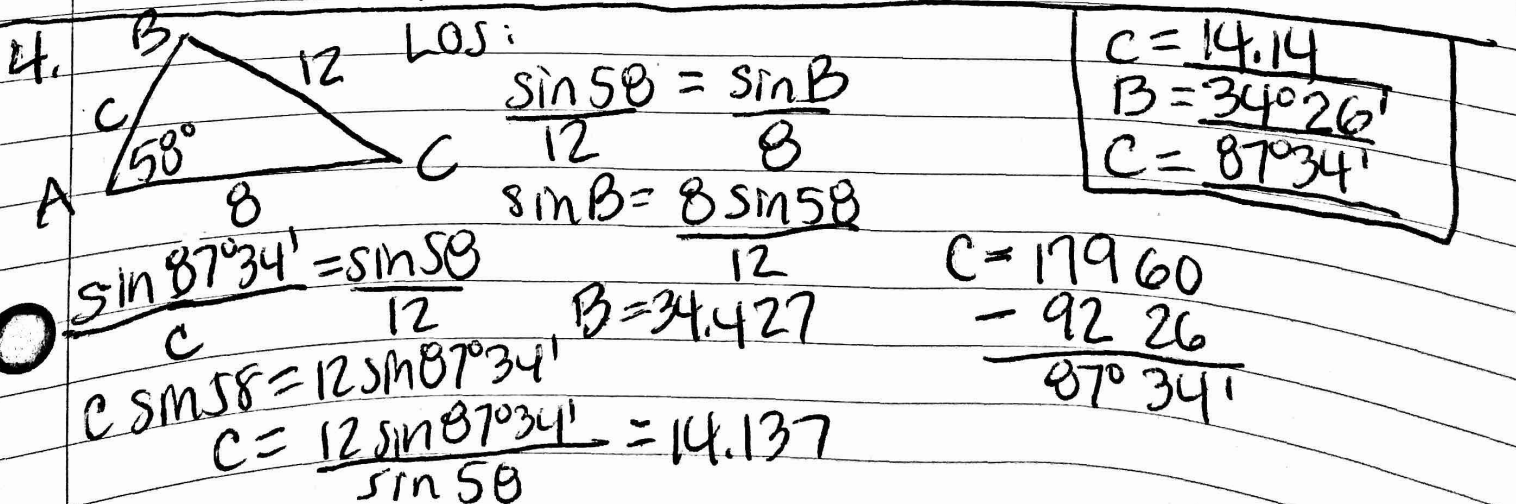 4.
B
12
c
58°
A
C
8
LOS:
sin58/12 = sinB/8
sinB = 8 sin58/12
B = 34.427
C = 179 60
- 92 26
87° 34'
sin 87°34'/c = sin58/12
c sin58 = 12 sin87°34'
c = 12 sin 87°34'/sin 58 = 14.137
c = 14.14
B = 34°26'
C = 87°34'